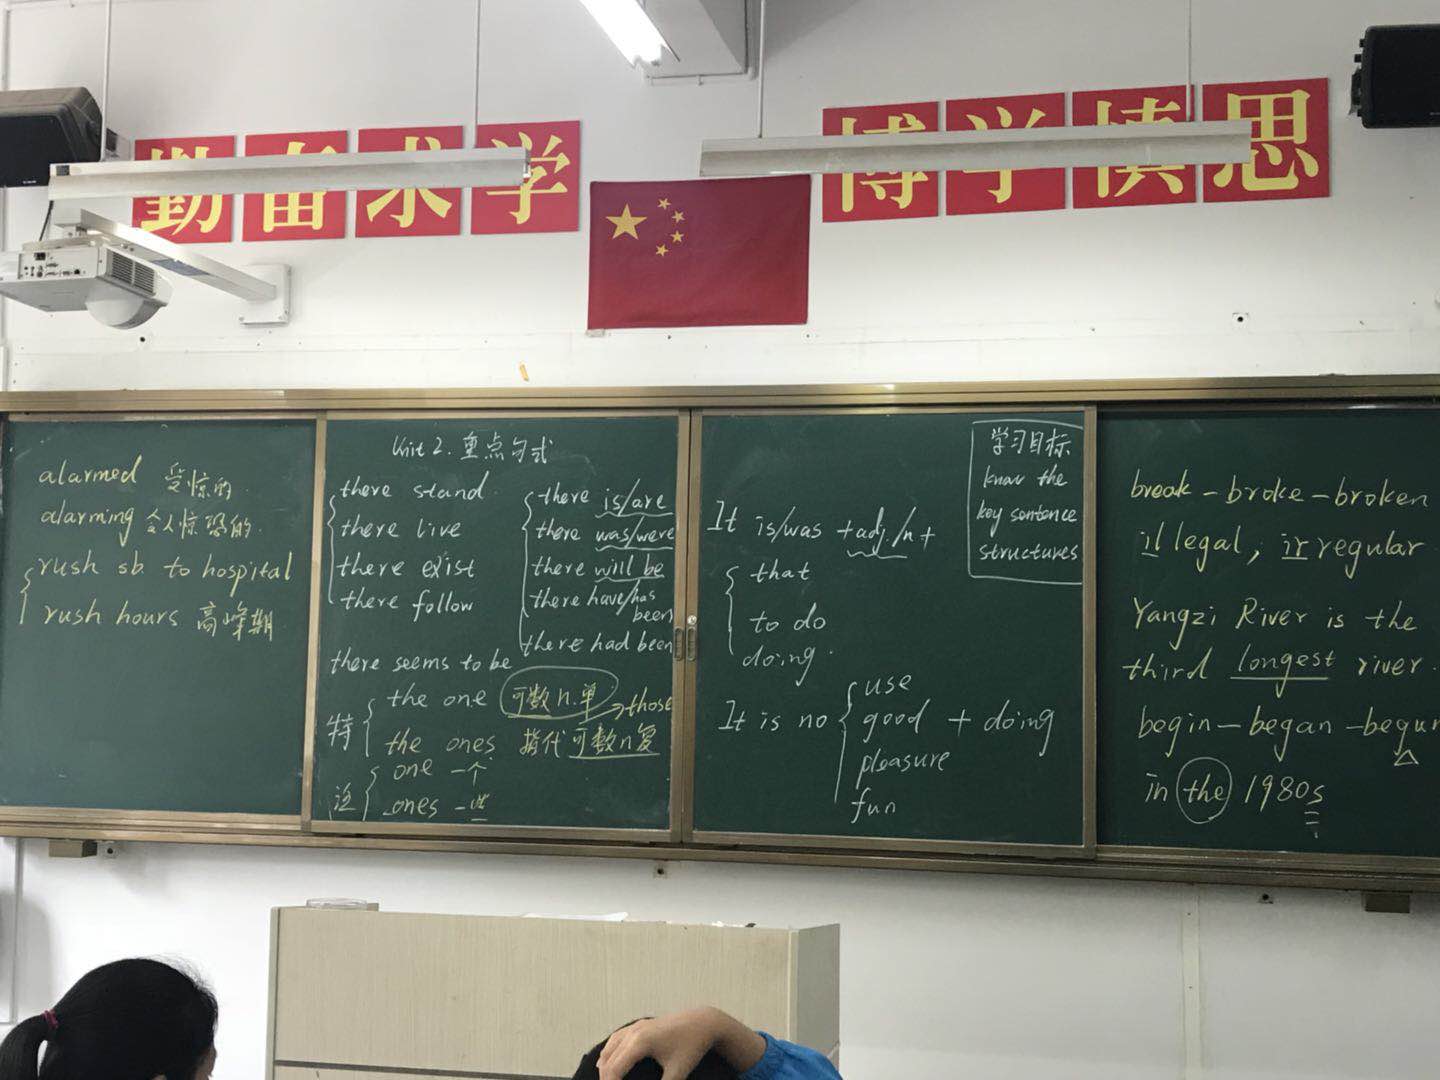 勤奋求学
博学慎思
alarmed 受惊的
alarming 令人惊恐的
rush sb to hospital
rush hours 高峰期
Unit 2. 重点句式
there stand
there live
there exist
there follow
there is/are
there was/were
there will be
there have/has been
there had been
there seems to be
特
the one 可数n.单
those
the ones 指代可数n复
泛
one 一个
ones 一些
学习目标
know the
key sentence
structures
It is/was +adj./n +
that
to do
doing.
It is no
use
good + doing
pleasure
fun
break - broke - broken
illegal, irregular
Yangzi River is the
third longest river.
begin - began - begun
in the 1980s